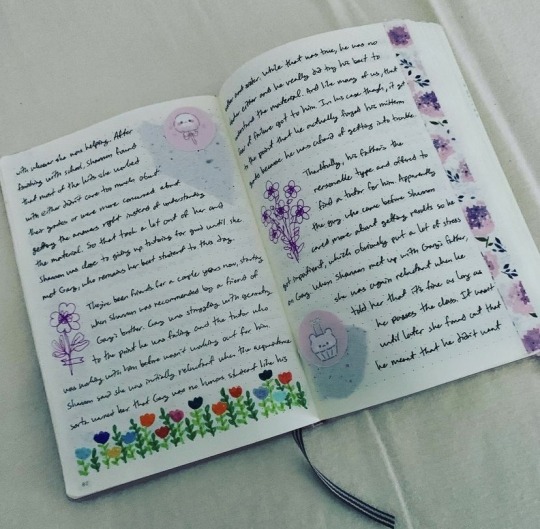 with whoever she was helping. After
tutoring with school, Shannon found
that most of the kids she worked
with either didn't care too much about
their grades or were more concerned about
getting the answers right instead of understanding
the material. So that took a lot out of her and
Shannon was close to giving up tutoring for good until she
met Gary, who remains her best student to this day.
They've been friends for a couple years now, starting
when Shannon was recommended by a friend of
Gary's brother. Gary was struggling with geometry
to the point he was failing and the tutor who
was working with him before wasn't working out for him.
Shannon said she was initially reluctant when the acquaintance
sorta warned her that Gary was no honors student like his
82
older sister. While that was true, he was no
slacker either and he really did try his best to
understand the material. And like many of us, that
fear of failure got to him. In his case though, it got
to the point that he actually forged his midterm
grade because he was afraid of getting into trouble.
Thankfully, his father's the
reasonable type and offered to
find a tutor for him. Apparently
the guy who came before Shannon
cared more about getting results so he
got impatient, which obviously put a lot of stress
on Gary. When Shannon met up with Gary's father,
she was again reluctant when he
told her that it's fine as long as
he passes the class. It wasn't
until later she found out that
he meant that he didn't want